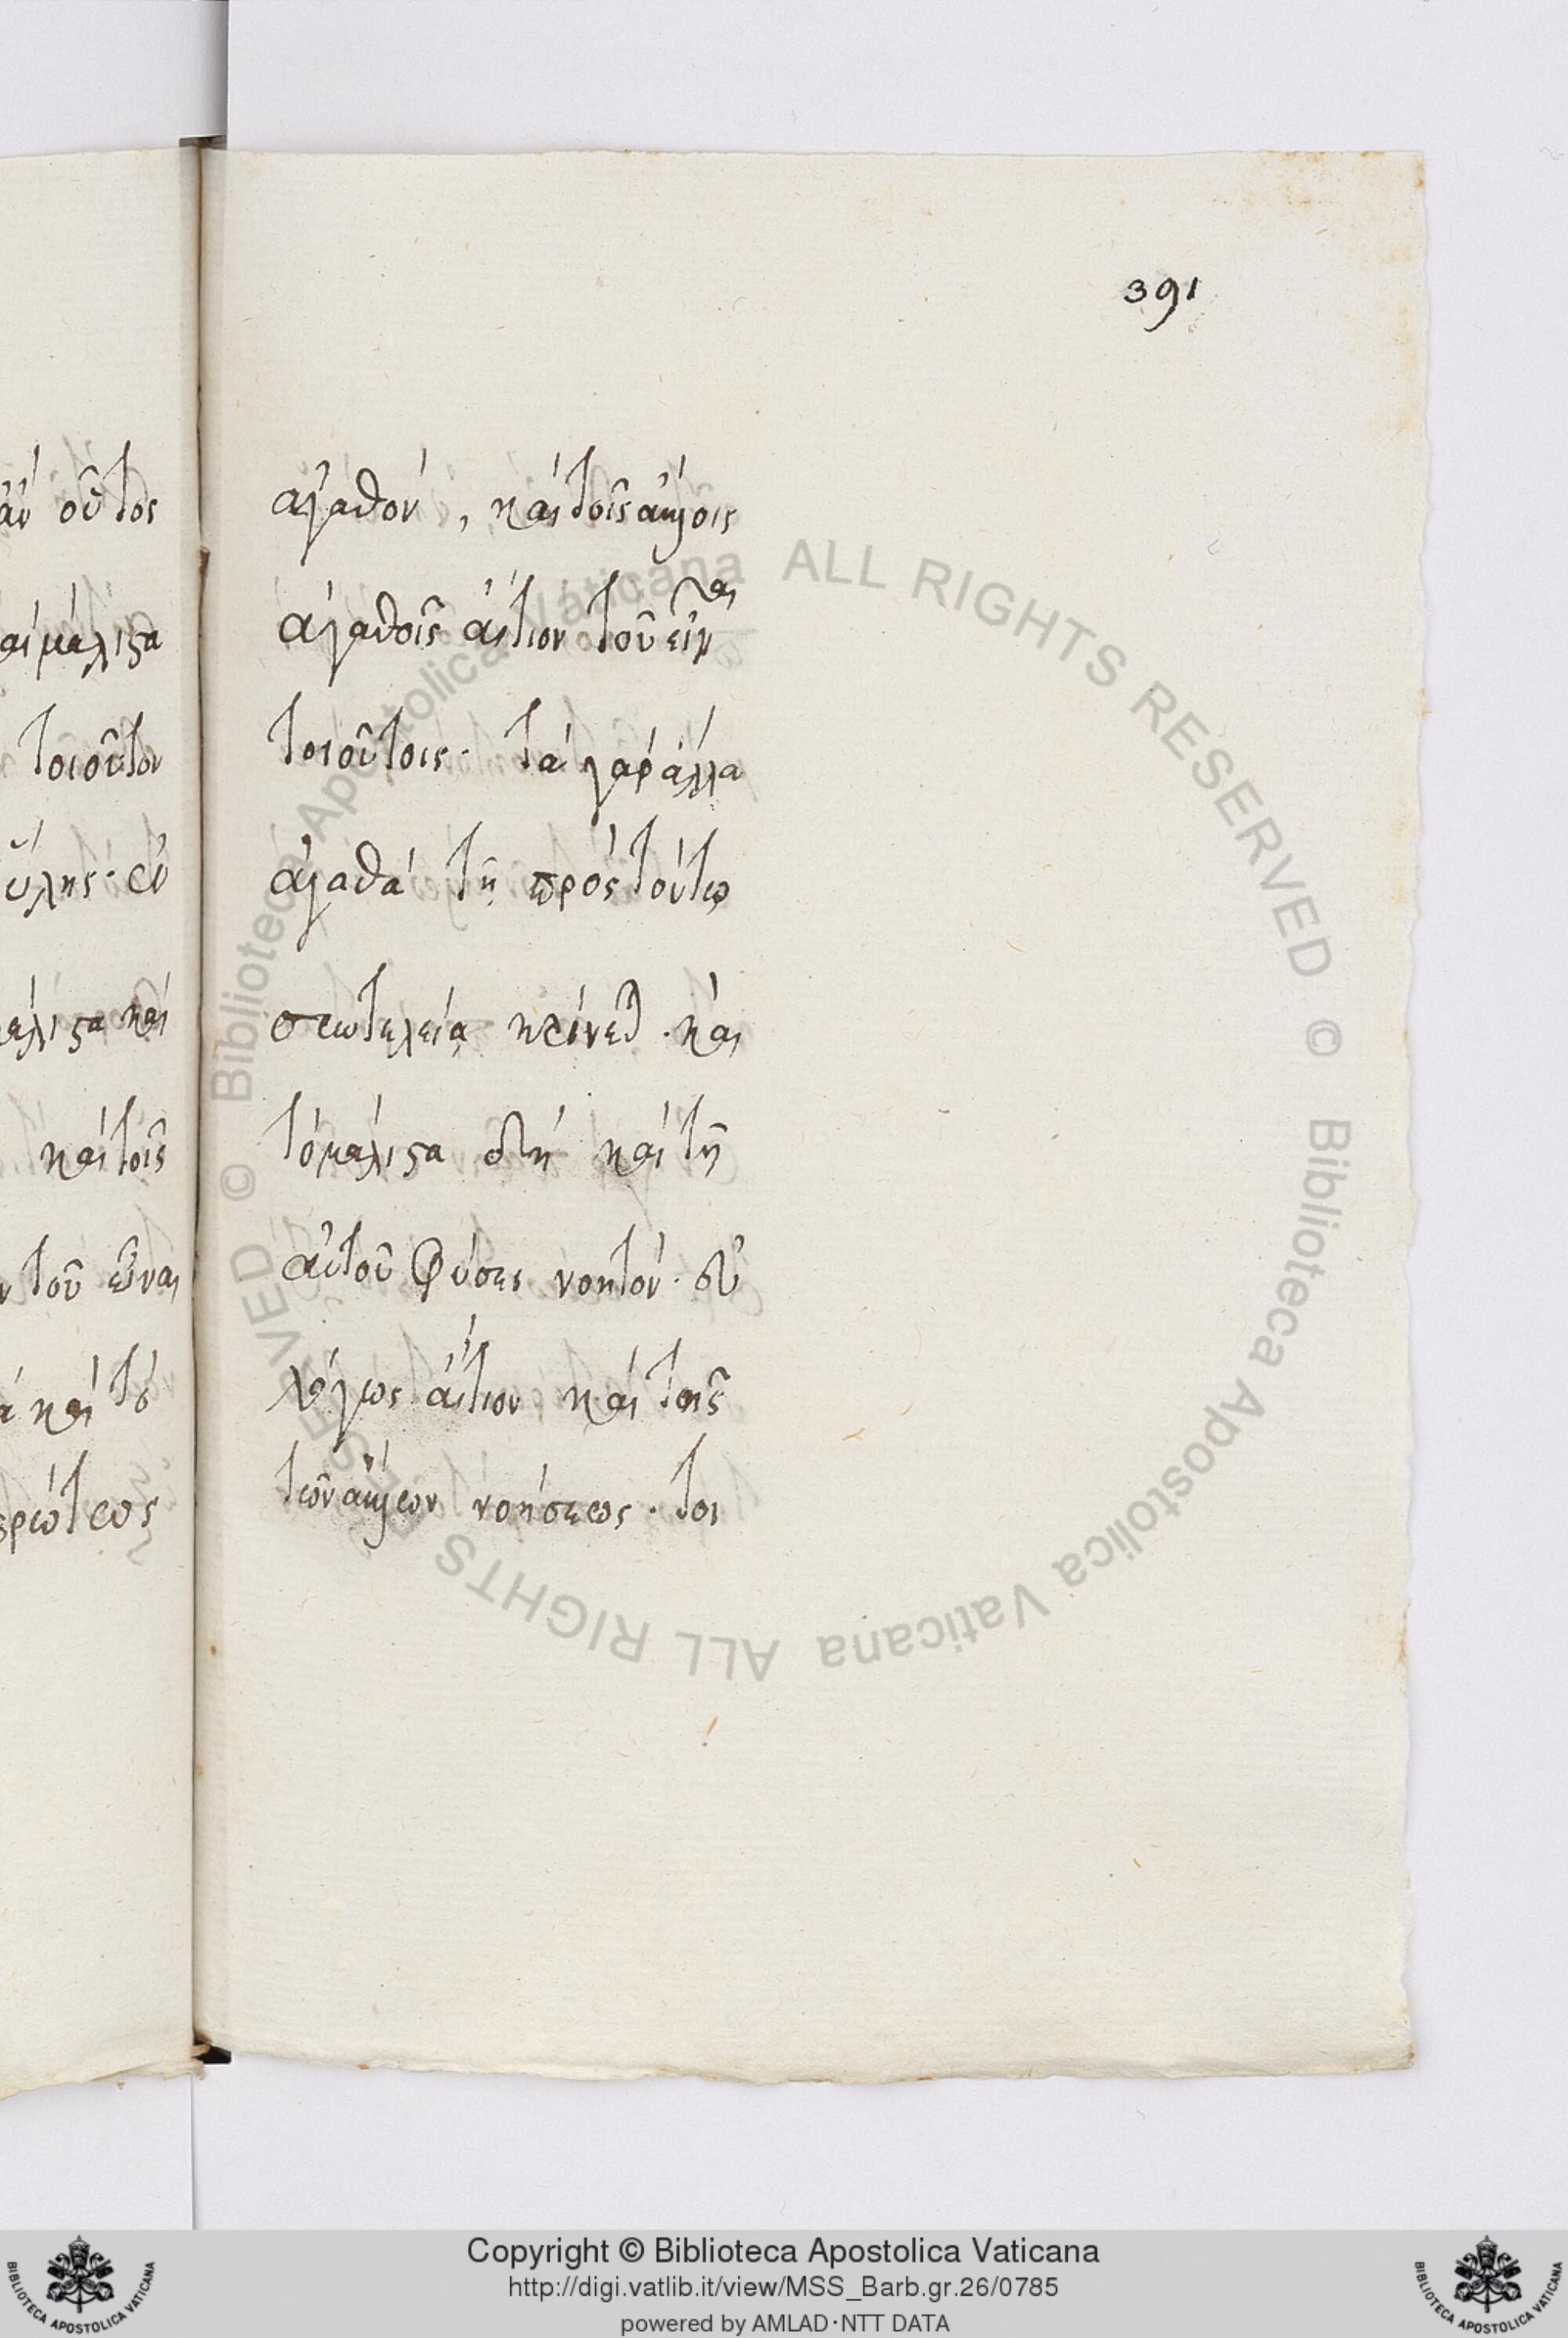 391
ἀν οὗτος
αι μάλιστα
τοιοῦτον
ὕλης· εὐ
μάλιστα καὶ
καὶ τοῖς
ν τοῦ εἶναι
ὰ καὶ τὸ
πρώτως
ἀγαθόν, καὶ τοῖς ἄλλοις
ἀγαθοῖς αἴτιον τοῦ εἶναι
τοιούτοις· τὰ γὰρ ἄλλα
ἀγαθὰ τῇ πρὸς τούτῳ
συντελείᾳ κρίνεται· καὶ
τὸ μάλιστα δὴ καὶ τῇ
αὐτοῦ φύσει νοητόν· εὐ
λόγως αἴτιον καὶ τοῖς
τῶν ἄλλων νοήσεως· τοι
Copyright © Biblioteca Apostolica Vaticana
http://digi.vatlib.it/view/MSS_Barb.gr.26/0785
powered by AMLAD·NTT DATA
BIBLIOTECA APOSTOLICA VATICANA
BIBLIOTECA APOSTOLICA VATICANA
© Biblioteca Apostolica Vaticana ALL RIGHTS RESERVED © Biblioteca Apostolica Vaticana ALL RIGHTS RESERVED